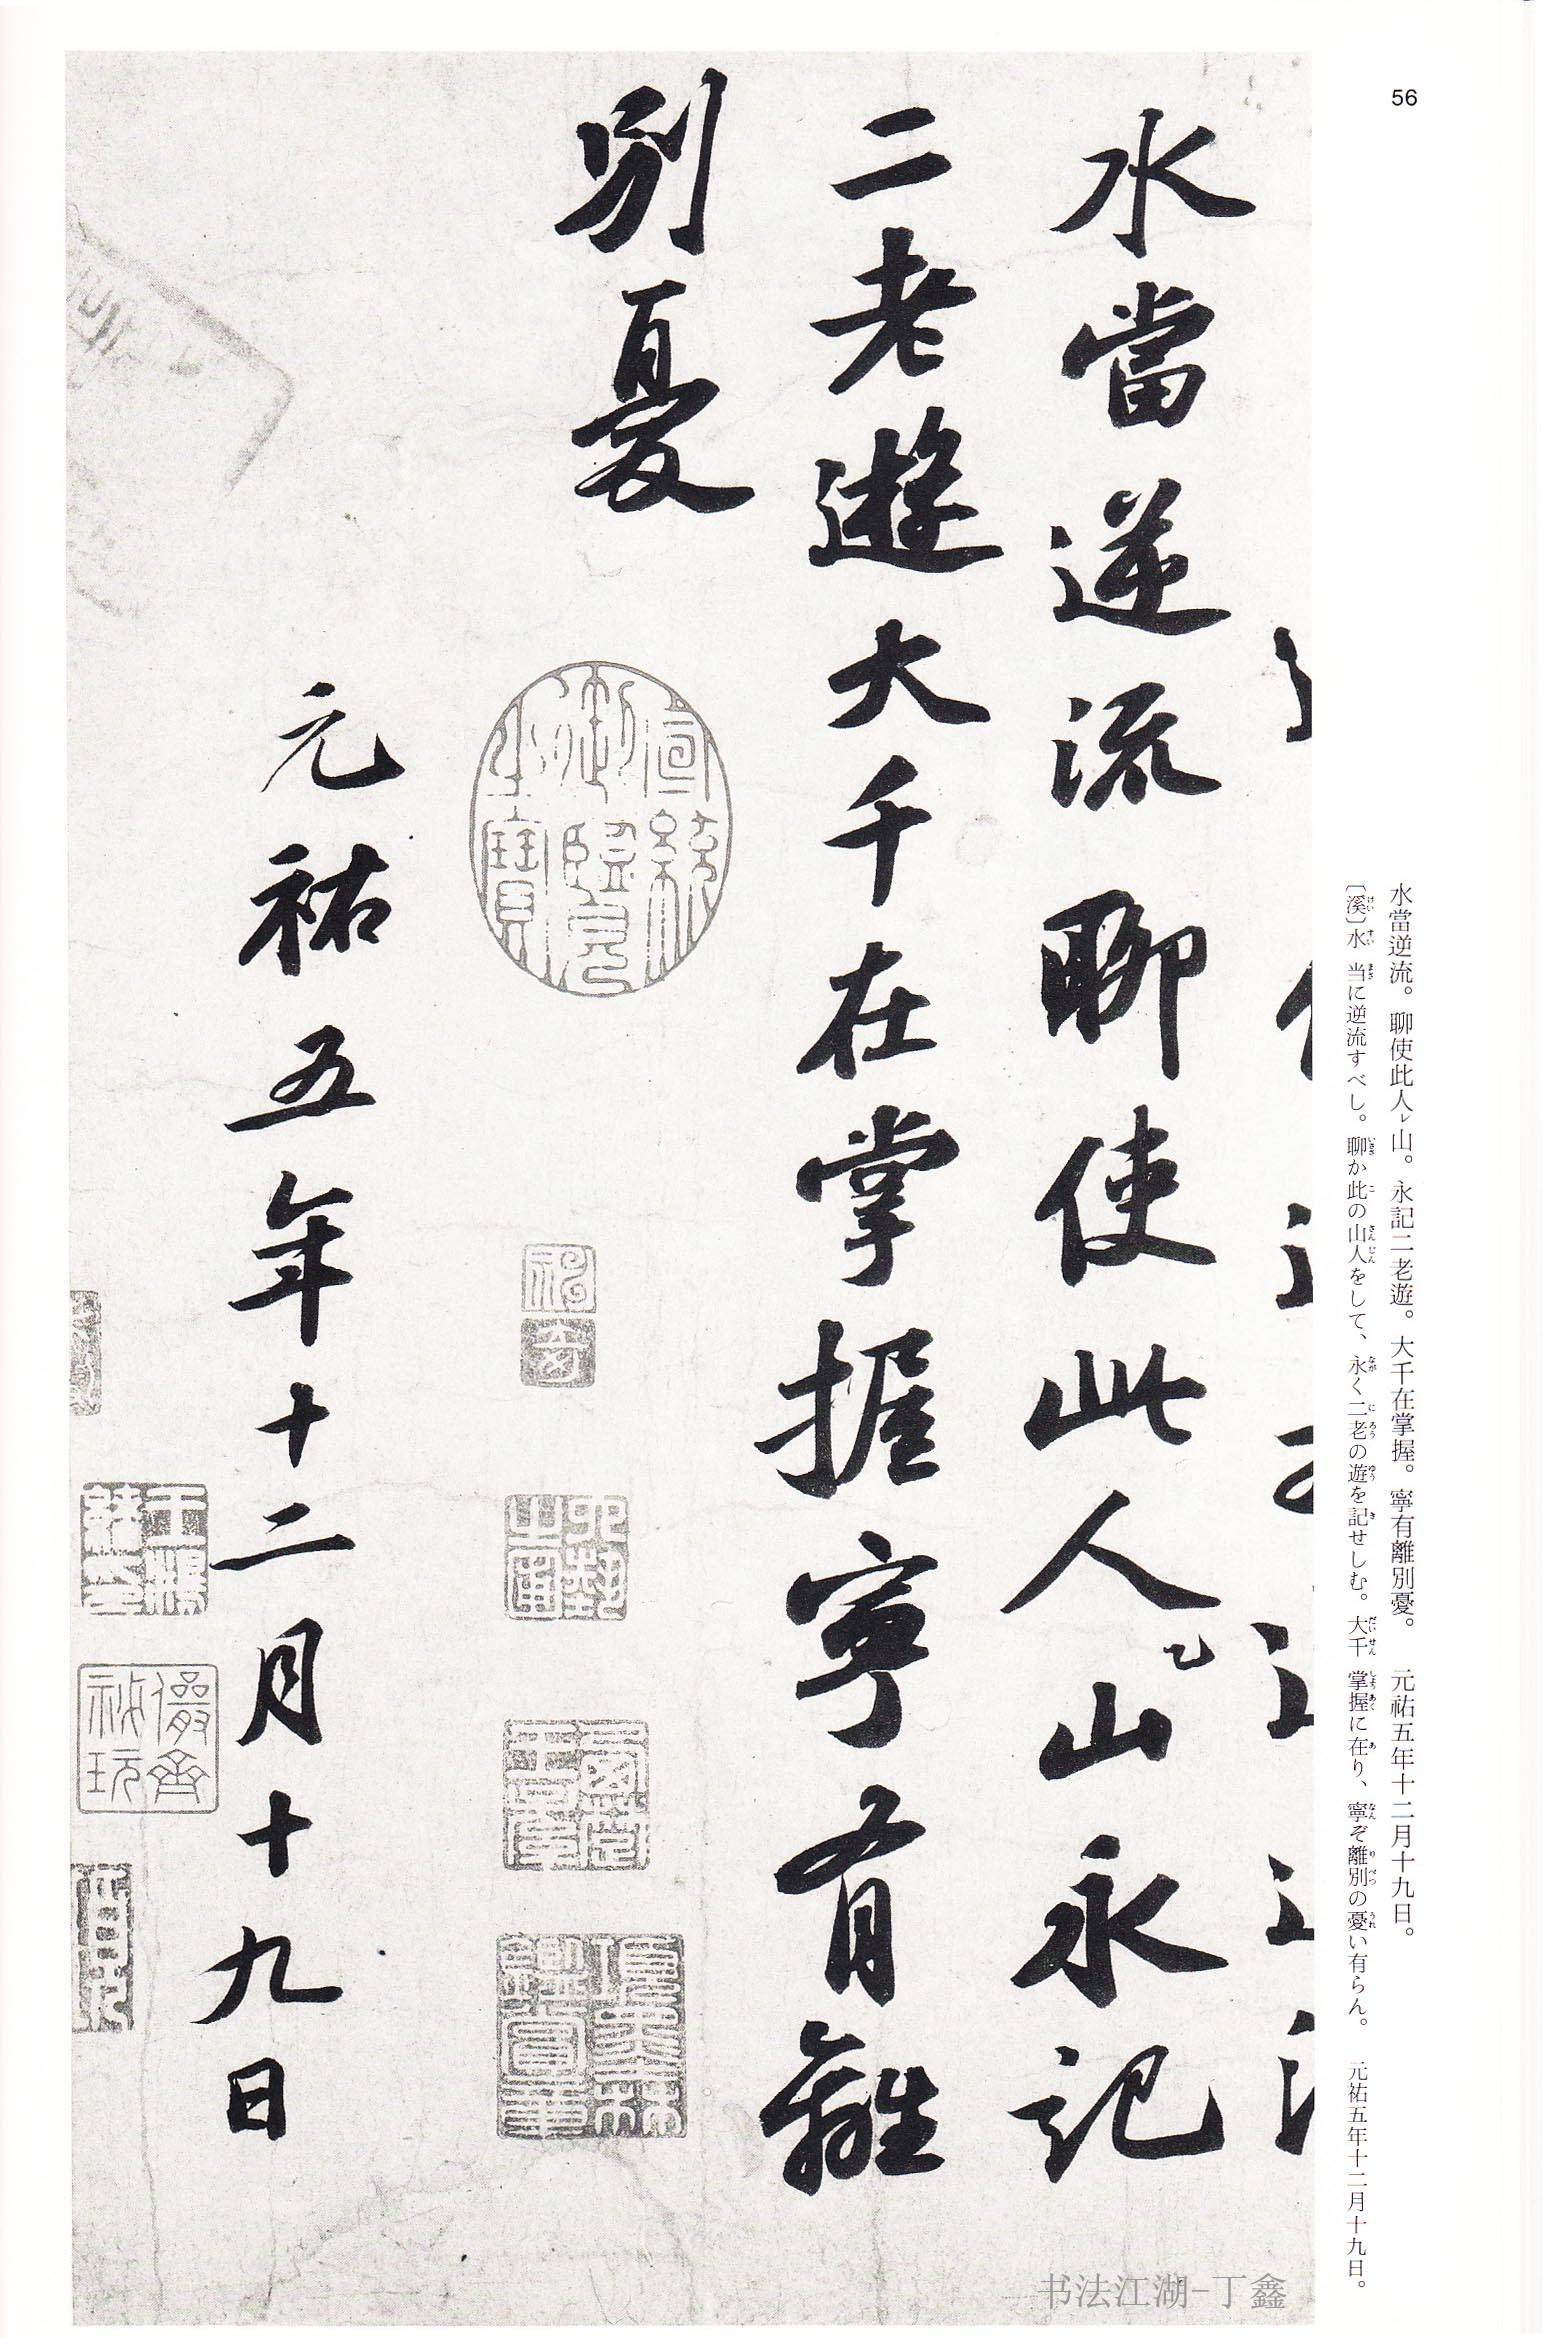 56
水當逆流。聊使此人㆑山。永記二老遊。大千在掌握。寧有離別憂。　元祐五年十二月十九日。
〔溪〕水　当に逆流すべし。聊か此の山人をして、永く二老の遊を記せしむ。大千　掌握に在り、寧ぞ離別の憂い有らん。　元祐五年十二月十九日。
水當逆流聊使此人山永記
二老遊大千在掌握寧有離
別憂
元祐五年十二月十九日
宣統御覽之寶
项墨林鑑賞章
儼齋秘玩
书法江湖-丁鑫